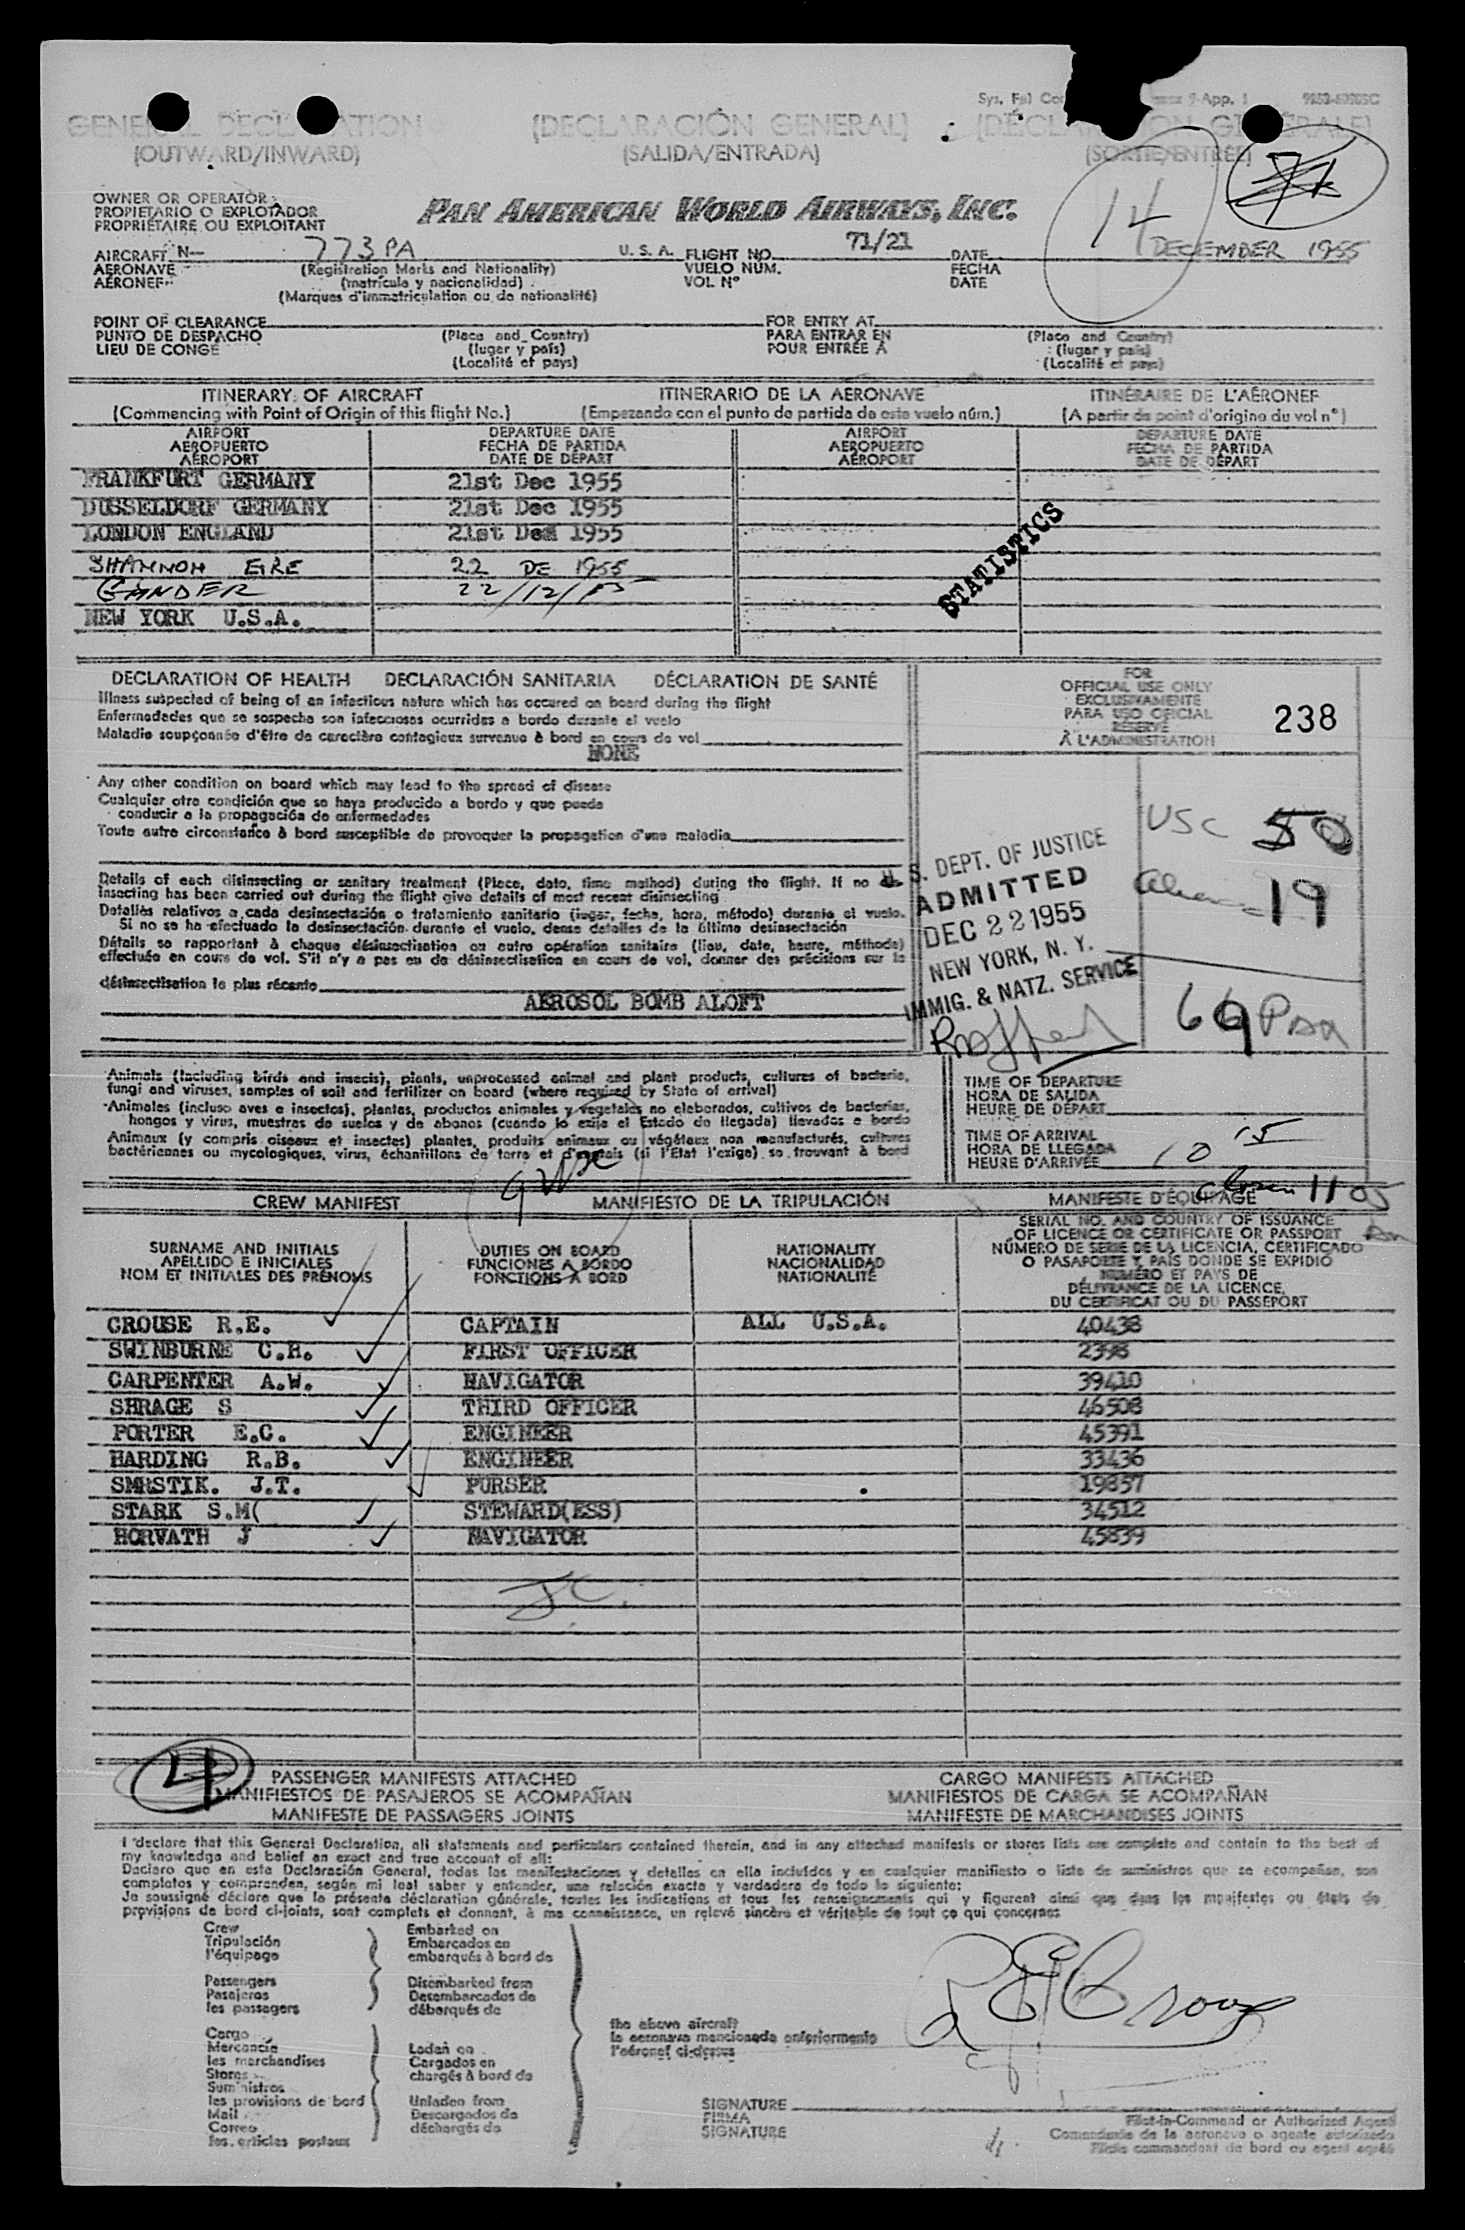 Sys. Fel Co
9-App. 1
GENERAL DECLARATION
(DECLARACIÓN GENERAL)
(DÉCLARATION GÉNÉRALE)
(OUTWARD/INWARD)
(SALIDA/ENTRADA)
(SORTIE/ENTRÉE)
OWNER OR OPERATOR
PROPIETARIO O EXPLOTADOR
PROPRIÉTAIRE OU EXPLOITANT
PAN AMERICAN WORLD AIRWAYS, INC.
14
AIRCRAFT N- 773PA U.S.A. FLIGHT NO. 71/21 DATE DECEMBER 1955
AERONAVE (Registration Marks and Nationality) VUELO NUM. FECHA
AÉRONEF (matrícula y nacionalidad) VOL N° DATE
(Marques d'immatriculation ou de nationalité)
POINT OF CLEARANCE FOR ENTRY AT
PUNTO DE DESPACHO (Place and Country) PARA ENTRAR EN (Place and Country)
LIEU DE CONGÉ (lugar y país) POUR ENTRÉE À (lugar y país)
(Localité et pays) (Localité et pays)
ITINERARY OF AIRCRAFT ITINERARIO DE LA AERONAVE ITINÉRAIRE DE L'AÉRONEF
(Commencing with Point of Origin of this flight No.) (Empezando con el punto de partida de este vuelo núm.) (A partir de point d'origine du vol n°)
AIRPORT DEPARTURE DATE AIRPORT DEPARTURE DATE
AEROPUERTO FECHA DE PARTIDA AEROPUERTO FECHA DE PARTIDA
AÉROPORT DATE DE DÉPART AÉROPORT DATE DE DÉPART
FRANKFURT GERMANY 21st Dec 1955
DUSSELDORF GERMANY 21st Dec 1955
LONDON ENGLAND 21st Dec 1955
SHANNON EIRE 22 DE 1955
GANDER 22/12/55
NEW YORK U.S.A.
STATISTICS
DECLARATION OF HEALTH DECLARACIÓN SANITARIA DÉCLARATION DE SANTÉ
Illness suspected of being of an infectious nature which has occured on board during the flight
Enfermedades que se sospecha son infecciosas ocurridas a bordo durante el vuelo
Maladie soupçonnée d'être de caractère contagieux survenue à bord en cours de vol
NONE
FOR
OFFICIAL USE ONLY
EXCLUSIVAMENTE
PARA USO OFICIAL
RÉSERVÉ
À L'ADMINISTRATION
238
Any other condition on board which may lead to the spread of disease
Cualquier otra condición que se haya producido a bordo y que pueda
conducir a la propagación de enfermedades
Toute autre circonstance à bord susceptible de provoquer la propagation d'une maladie
USC 50
19
Details of each disinsecting or sanitary treatment (Place, date, time method) during the flight. If no dis-
insecting has been carried out during the flight give details of most recent disinsecting
Detalles relativos a cada desinsectación o tratamiento sanitario (lugar, fecha, hora, método) durante el vuelo.
Si no se ha efectuado la desinsectación durante el vuelo, dense detalles de la última desinsectación
Détails se rapportant à chaque désinsectisation ou autre opération sanitaire (lieu, date, heure, méthode)
effectuée en cours de vol. S'il n'y a pas eu de désinsectisation en cours de vol, donner des précisions sur la
désinsectisation la plus récente
AEROSOL BOMB ALOFT
U. S. DEPT. OF JUSTICE
ADMITTED
DEC 22 1955
NEW YORK, N. Y.
IMMIG. & NATZ. SERVICE
69 Pax
Animals (including birds and insects), plants, unprocessed animal and plant products, cultures of bacteria,
fungi and viruses, samples of soil and fertilizer on board (where required by State of arrival)
Animales (incluso aves e insectos), plantas, productos animales y vegetales no elaborados, cultivos de bacterias,
hongos y virus, muestras de suelos y de abonos (cuando lo exija el Estado de llegada) llevados a bordo
Animaux (y compris oiseaux et insectes) plantes, produits animaux ou végétaux non manufacturés, cultures
bactériennes ou mycologiques, virus, échantillons de terre et d'engrais (si l'État l'exige) se trouvant à bord
TIME OF DEPARTURE
HORA DE SALIDA
HEURE DE DÉPART
TIME OF ARRIVAL
HORA DE LLEGADA
HEURE D'ARRIVÉE 10 15
1105
CREW MANIFEST MANIFIESTO DE LA TRIPULACIÓN MANIFESTE D'ÉQUIPAGE
SURNAME AND INITIALS
APELLIDO E INICIALES
NOM ET INITIALES DES PRÉNOMS
DUTIES ON BOARD
FUNCIONES A BORDO
FONCTIONS A BORD
NATIONALITY
NACIONALIDAD
NATIONALITÉ
SERIAL NO. AND COUNTRY OF ISSUANCE
OF LICENCE OR CERTIFICATE OR PASSPORT
NÚMERO DE SERIE DE LA LICENCIA, CERTIFICADO
O PASAPORTE Y PAÍS DONDE SE EXPIDIÓ
NUMÉRO ET PAYS DE
DÉLIVRANCE DE LA LICENCE,
DU CERTIFICAT OU DU PASSEPORT
CROUSE R.E. CAPTAIN ALL U.S.A. 40438
SWINBURNE C.H. FIRST OFFICER 2398
CARPENTER A.W. NAVIGATOR 39410
SHRAGE S THIRD OFFICER 46508
PORTER E.C. ENGINEER 45391
HARDING R.B. ENGINEER 33436
SMRSTIK. J.T. PURSER 19857
STARK S.M( STEWARD(ESS) 34512
HORVATH J NAVIGATOR 45839
4
PASSENGER MANIFESTS ATTACHED CARGO MANIFESTS ATTACHED
MANIFIESTOS DE PASAJEROS SE ACOMPAÑAN MANIFIESTOS DE CARGA SE ACOMPAÑAN
MANIFESTE DE PASSAGERS JOINTS MANIFESTE DE MARCHANDISES JOINTS
I declare that this General Declaration, all statements and particulars contained therein, and in any attached manifests or stores lists are complete and contain to the best of
my knowledge and belief an exact and true account of all:
Declaro que en esta Declaración General, todas las manifestaciones y detalles en ella incluídos y en cualquier manifiesto o lista de suministros que se acompañan, son
completos y comprenden, según mi leal saber y entender, una relación exacta y verdadera de todo lo siguiente:
Je soussigné déclare que la présente déclaration générale, toutes les indications et tous les renseignements qui y figurent ainsi que dans les manifestes ou états de
provisions de bord ci-joints, sont complets et donnent, à ma connaissance, un relevé sincère et véritable de tout ce qui concerne:
Crew Embarked on
Tripulación Embarcados en
l'équipage embarqués à bord de
Passengers Disembarked from
Pasajeros Desembarcados de
les passagers débarqués de
Cargo
Mercancía Laden on
les marchandises Cargados en
Stores chargés à bord de
Suministros
les provisions de bord Unladen from
Mail Descargados de
Correo déchargés de
les articles postaux
the above aircraft
la aeronave mencionada anteriormente
l'aéronef ci-dessus
R E Crouse
SIGNATURE
FIRMA
SIGNATURE
Pilot-in-Command or Authorized Agent
Comandante de la aeronave o agente autorizado
Pilote commandant de bord ou agent agréé